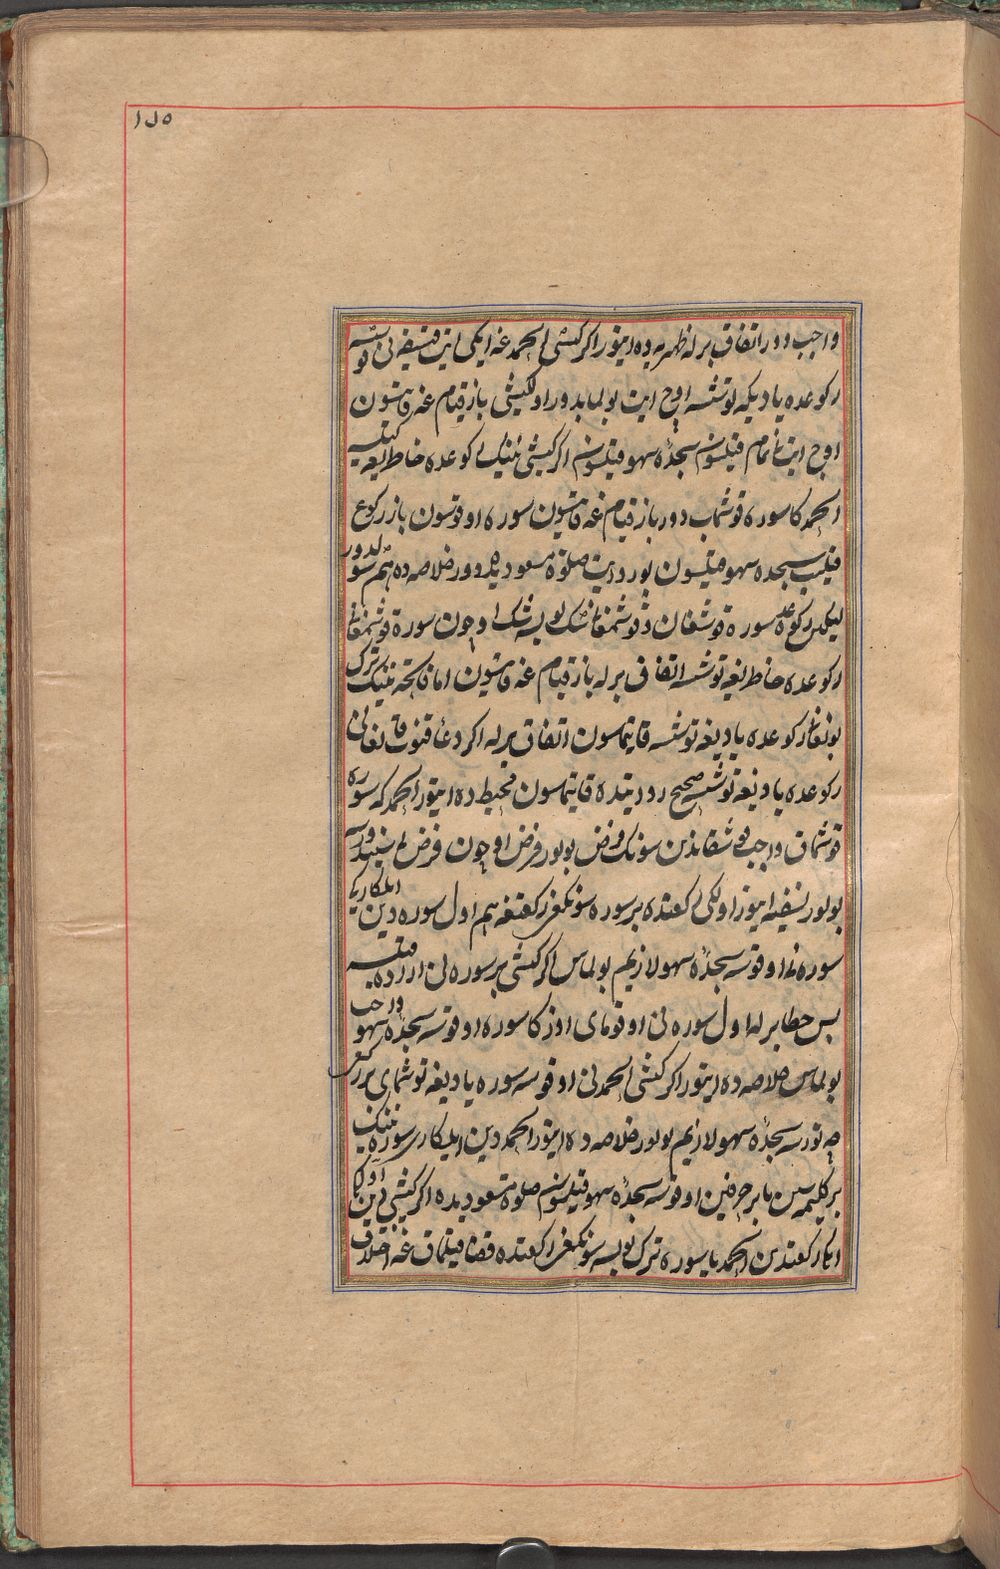 ١٨٥
واجب دور اتفاق برله ظهریه ده ایتور اکر کیشی الحمد غه ایکی ایت قیسقه نی قوشسه
رکوعده یادیکه توشسه اوچ ایت بولمابدور اول کیشی باز قیام غه قایتسون
اوچ ایت نی تمام قیلسون سجدهٔ سهو قیلسون اکر کیشی نینک رکوعده خاطریغه کیلسه
الحمد کا سوره قوشماب دور باز قیام غه قایتسون سوره اوقوسون باز رکوع
قیلیب سجده سهو قیلسون بو روایت صلوة مسعودیده دور خلاصه ده هم
لیکن رکوعده سوره قوشغان و قوشمغانغه شک بولسه شک اوچون سوره قوشمغای
رکوعده خاطریغه توشسه اتفاق برله باز قیام غه قایتسون اما فاتحه نینک ترک
بولغانی رکوعده یادیغه توشسه قایتماسون اتفاق برله اکر دعای قنوت قالغانی
رکوعده یادیغه توشسه صحیح روایتده قایتماسون محیط ده ایتور الحمد که سوره
قوشماق واجب قوشقاندین سونک فرض بولور فرض اوچون فرض
بولور نسفیه ایتور اولکی رکعتده بر سوره سونکغی رکعتغه هم اول سوره دین ایلکاریکی
سوره نی اوقوسه سجدهٔ سهو لازیم بولماس اکر کیشی بر سوره نی اراده قیلسه
بس خطا برله اول سوره نی اوقومای اوزکا سوره اوقوسه سجدهٔ سهو واجب
بولماس خلاصه ده ایتور اکر کیشی الحمدنی اوقوسه سوره یادیغه توشمای بر رکعت
چه تورسه سجدهٔ سهو لازیم بولور خلاصه ده ایتور الحمد دین ایلکاری سوره نینک
بر کلیمه سین یا بر حرفین اوقوسه سجدهٔ سهو قیلسون صلوة مسعودیده اکر کیشی نین اولکی
ایکی رکعتدین الحمد یا سوره ترک بولسه سونکغی رکعتده قضا قیلماق غه اختلاف